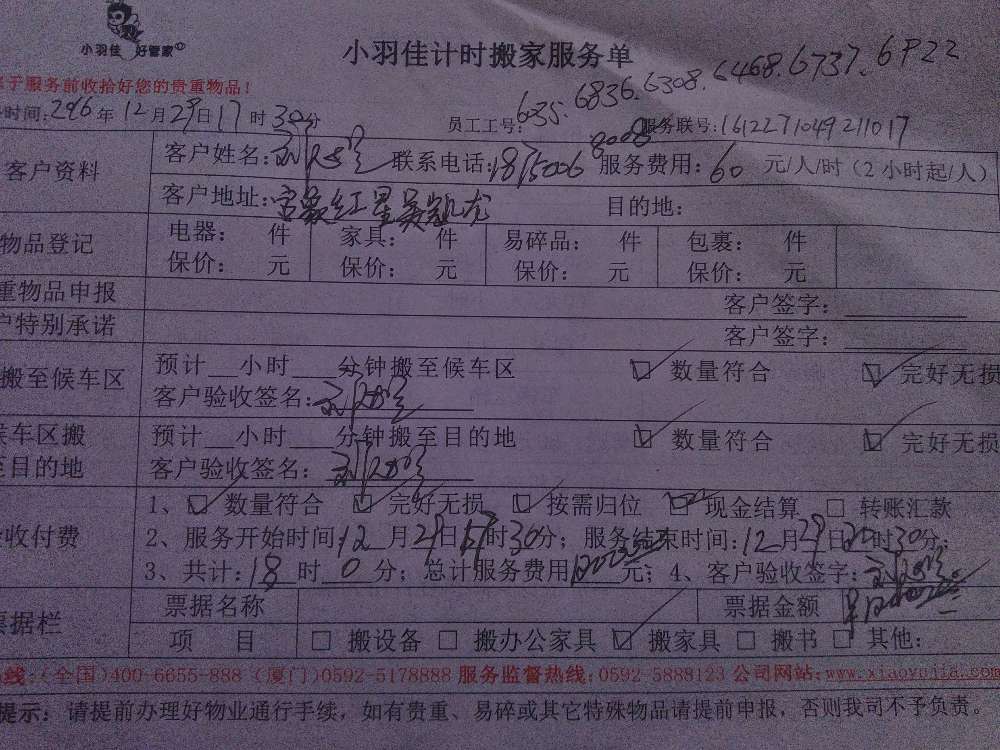 小羽佳 好管家
小羽佳计时搬家服务单
于服务前收拾好您的贵重物品！
6035. 6836. 6308. 6468. 6737. 6922
时间: 2016年12月29日17时30分 员工工号: 8008 服务联号: 1612271049211017
客户资料 客户姓名: 联系电话: 服务费用: 60 元/人/时（2小时起/人）
客户地址: 红星 目的地:
物品登记 电器： 件 家具： 件 易碎品： 件 包裹： 件
保价： 元 保价： 元 保价： 元 保价： 元
重物品申报 客户签字：
户特别承诺 客户签字：
搬至候车区 预计 小时 分钟搬至候车区 数量符合 完好无损
客户验收签名：
候车区搬至目的地 预计 小时 分钟搬至目的地 数量符合 完好无损
客户验收签名：
收付费 1、 数量符合 完好无损 按需归位 现金结算 转账汇款
2、服务开始时间: 12月29日 时30分；服务结束时间: 12月29日 时30分；
3、共计: 18时0分；总计服务费用 元；4、客户验收签字:
票据栏 票据名称 票据金额
项 目 搬设备 搬办公家具 搬家具 搬书 其他:
线:(全国)400-6655-888 (厦门)0592-5178888 服务监督热线:0592-5888123 公司网站:www.xiaoyujia.com
提示：请提前办理好物业通行手续，如有贵重、易碎或其它特殊物品请提前申报，否则我司不予负责。